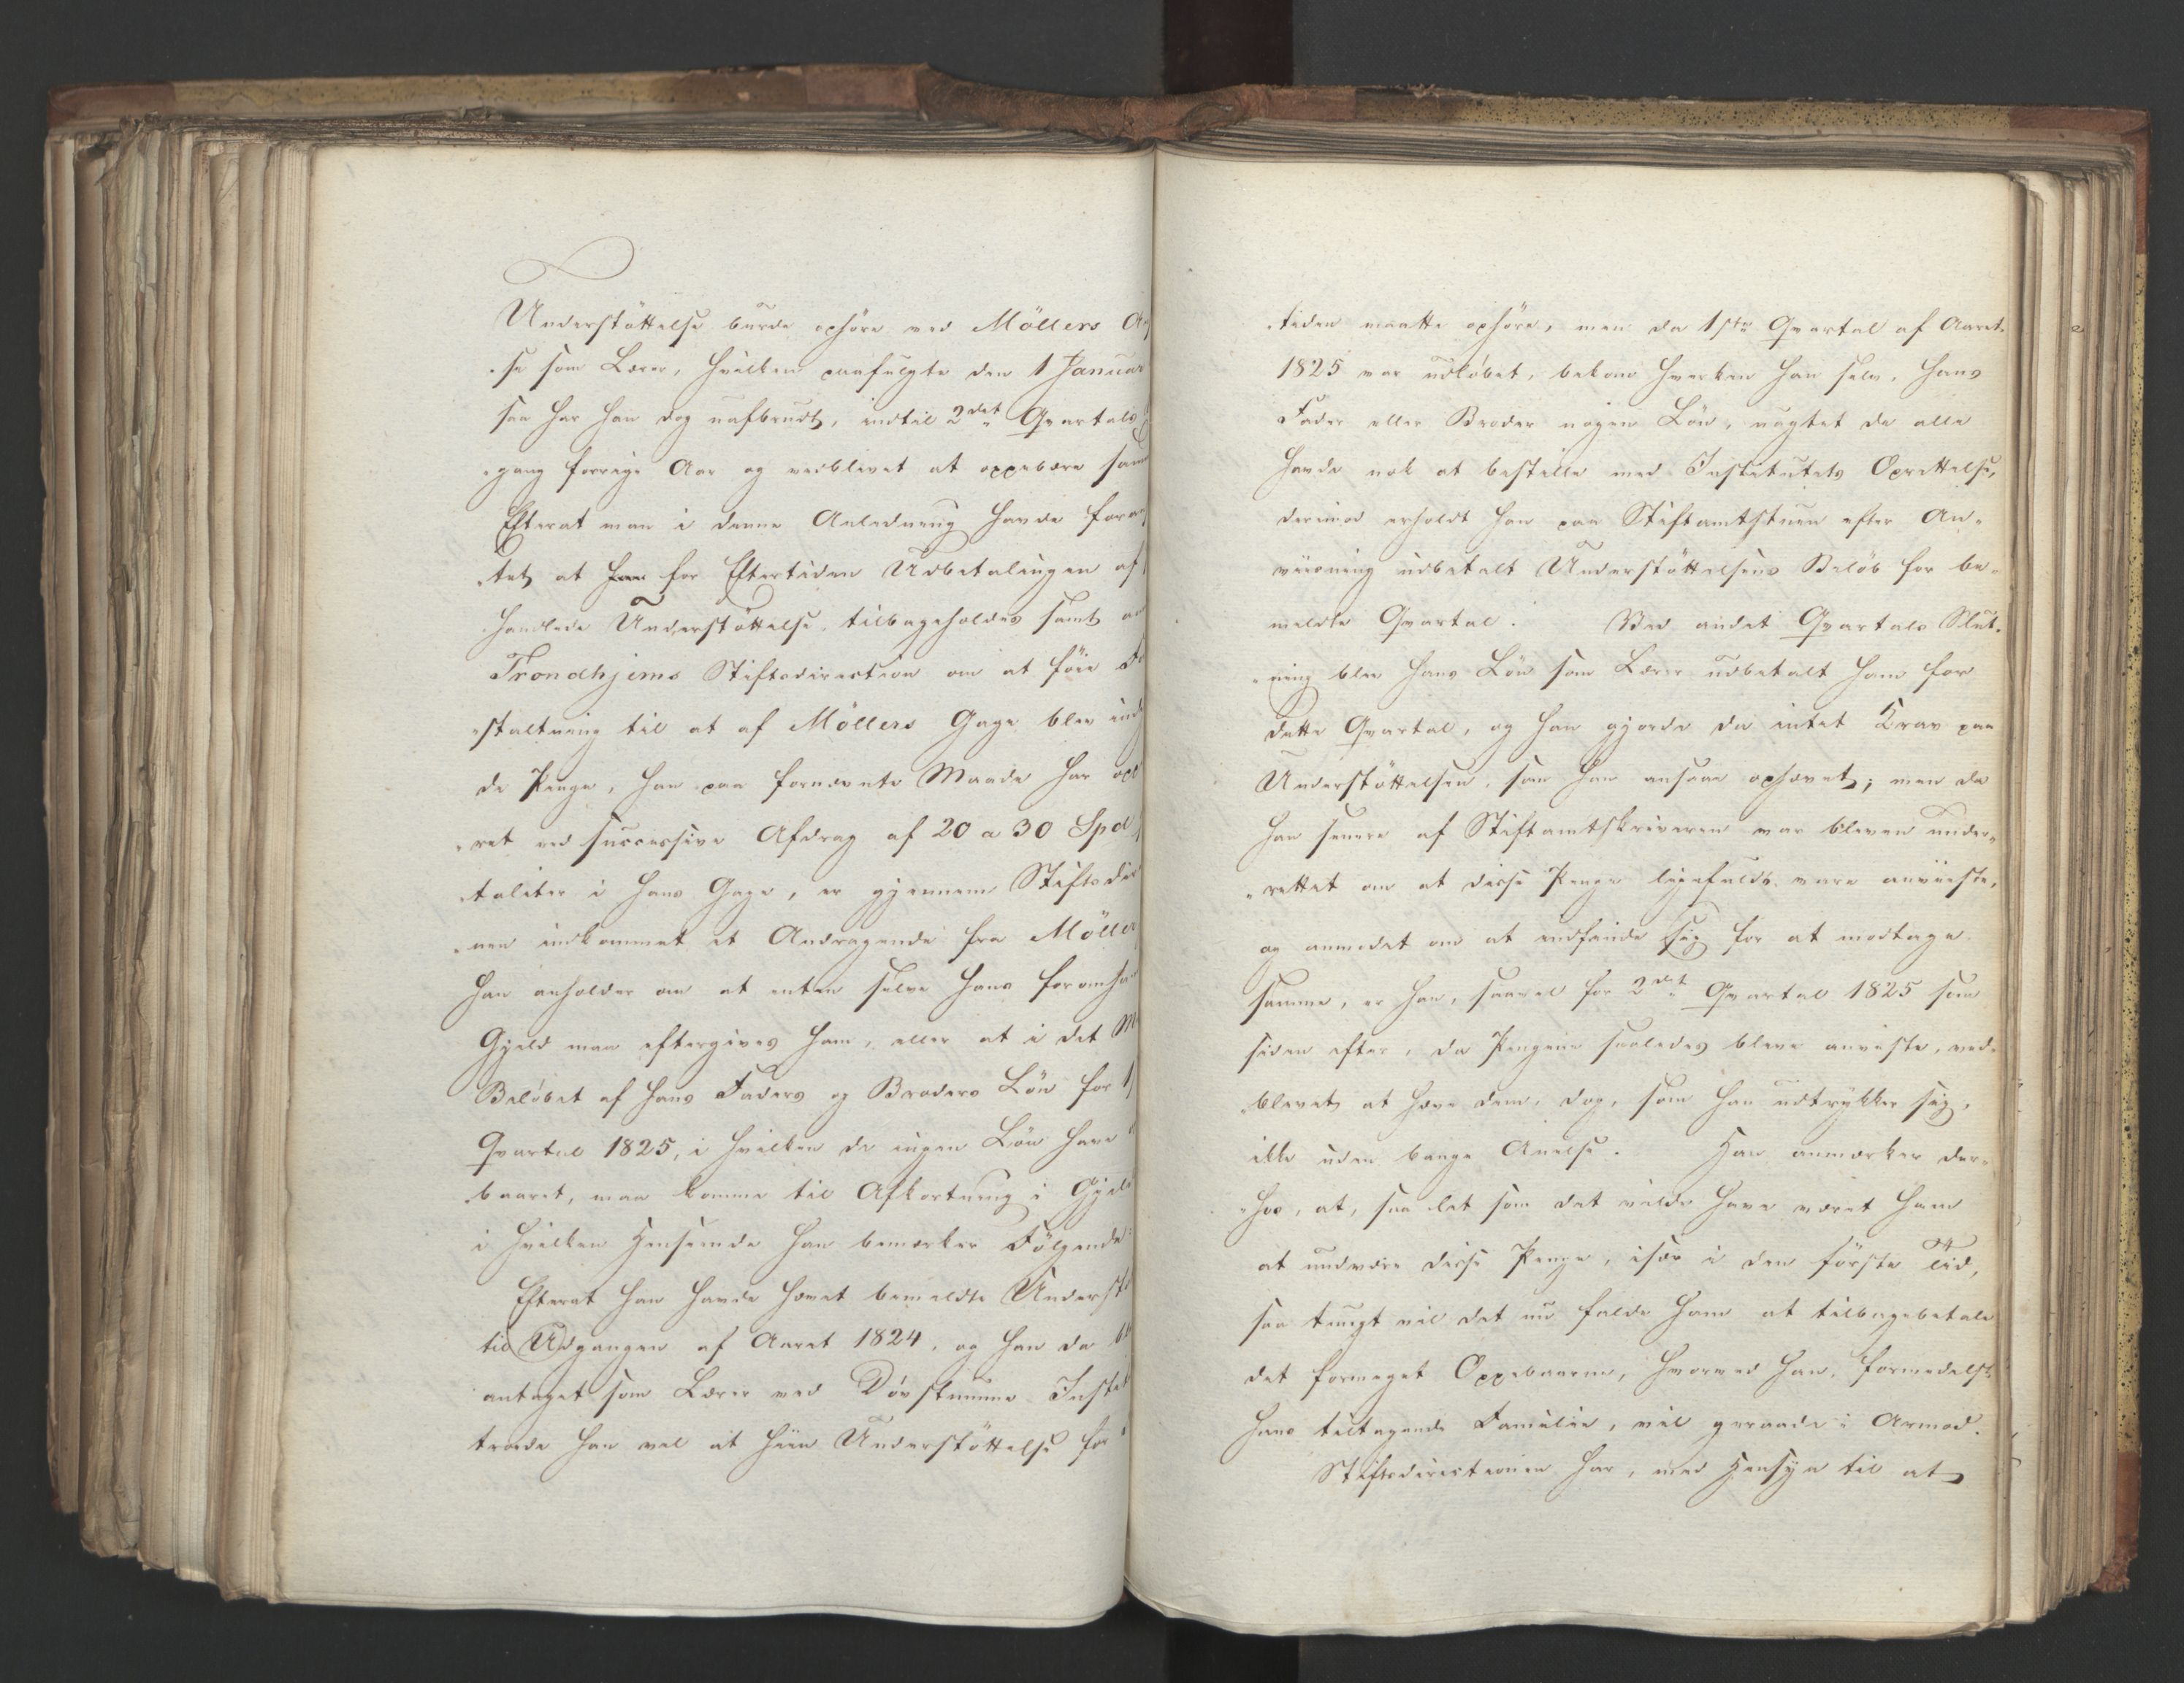 Understöttelse burde ophöre med Möllers
se som Lærer, hvilken paafulgte den 1 Januar
saa har han dog uafbrudt, indtil 2det Qvartals
gang forrige Aar og vedblivet at oppebære
Efterat man i denne Anledning havde
tet, at for Eftertiden Udbetalingen af
handlede Understöttelse tilbageholdes samt
Trondhjems Stiftsdirection om at föie
staltning til at af Möllers Gage blev
de Penge, han paa fornævnte Maade har
ret ved successive Afdrag af 20 a 30 Spd
taliter i hans Gage, er gjennem
nen indkommet et Andragende fra
han anholder om at enten selve hans
Gjeld maa eftergives ham, eller at i det
Belöbet af hans Faders og Broders Lön for
Qvartal 1825, i hvilken de ingen Lön have
baaret, maa komme til Afkortning i
i hvilken Henseende han bemærker Fölgende:
Efterat han havde hævet bemeldte
til Udgangen af Aaret 1824, og han da
antaget som Lærer ved Dövstumme
troede han vel at hiin Understöttelse for
tiden maatte ophöre, men da 1ste Qvartal af Aaret
1825 var udlöbet, bekom hverken han selv, hans
Fader eller Broder nogen Lön, uagtet de alle
havde nok at bestille med Institutets Oprettelse,
derimod erholdt han paa Stiftamtstuen efter An-
viisning udbetalt Understöttelsens Belöb for be-
meldte Qvartal. Ved andet Qvartals Slut-
ning blev hans Lön som Lærer udbetalt ham for
dette Qvartal, og han gjorde da intet Krav paa
Understöttelsen, som han ansaae ophævet; men da
han senere af Stiftamtskriveren var bleven under-
rettet om at disse Penge ligefuldt vare anviiste,
og anmodet om at indfinde sig for at modtage
samme, er han, saavel for 2det Qvartal 1825 som
siden efter, da Pengene saaledes bleve anviste, ved-
blevet at hæve dem, dog, som han udtrykker sig,
ikke uden bange Anelse. Han anmærker der-
hos, at, saa let som det vilde have været ham
at undvære disse Penge, især i den förste Tid,
saa tungt vil det nu falde ham at tilbagebetale
det formeget Oppebaarne, hvorved han, formedelst
hans tiltagende Familie, vil geraade i Armod.
Stiftsdirectionen har, med Hensyn til at